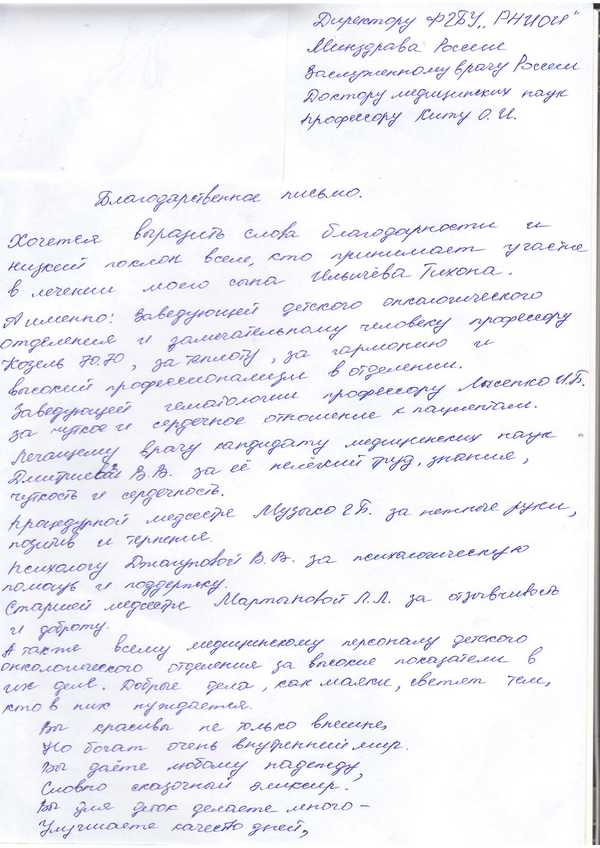 Директору ФГБУ „РНИОИ"
Минздрава России
Заслуженному врачу России
Доктору медицинских наук
профессору Киту О.И.
Благодарственное письмо.
Хочется выразить слова благодарности и
низкий поклон всем, кто принимает участие
в лечении моего сына Ильичёва Тихона.
А именно: Заведующей детского онкологического
отделения и замечательному человеку профессору
Козель Ю.Ю., за теплоту, за гармонию и
высокий профессионализм в отделении.
Заведующей гематологии профессору Лысенко И.Б.
за чуткое и сердечное отношение к пациентам.
Лечащему врачу кандидату медицинских наук
Дмитриевой В.В. за её нелёгкий труд, знания,
чуткость и сердечность.
Процедурной медсестре Музыко Г.Б. за нежные руки,
позитив и терпение.
Психологу Джануровой В.В. за психологическую
помощь и поддержку.
Старшей медсестре Мартыновой Л.Л. за отзывчивость
и доброту.
А также всему медицинскому персоналу детского
онкологического отделения за высокие показатели в
их деле. Добрые дела, как маяки, светят тем,
кто в них нуждается.
Вы красивы не только внешне,
Но богат очень внутренний мир.
Вы даёте любому надежду,
Словно сказочный эликсир.
Вы для деток делаете много –
Улучшаете качество дней,